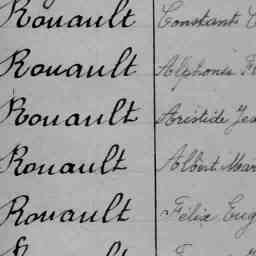 Rouault Constant
Rouault Alphonse
Rouault Aristide
Rouault Albert
Rouault Félix